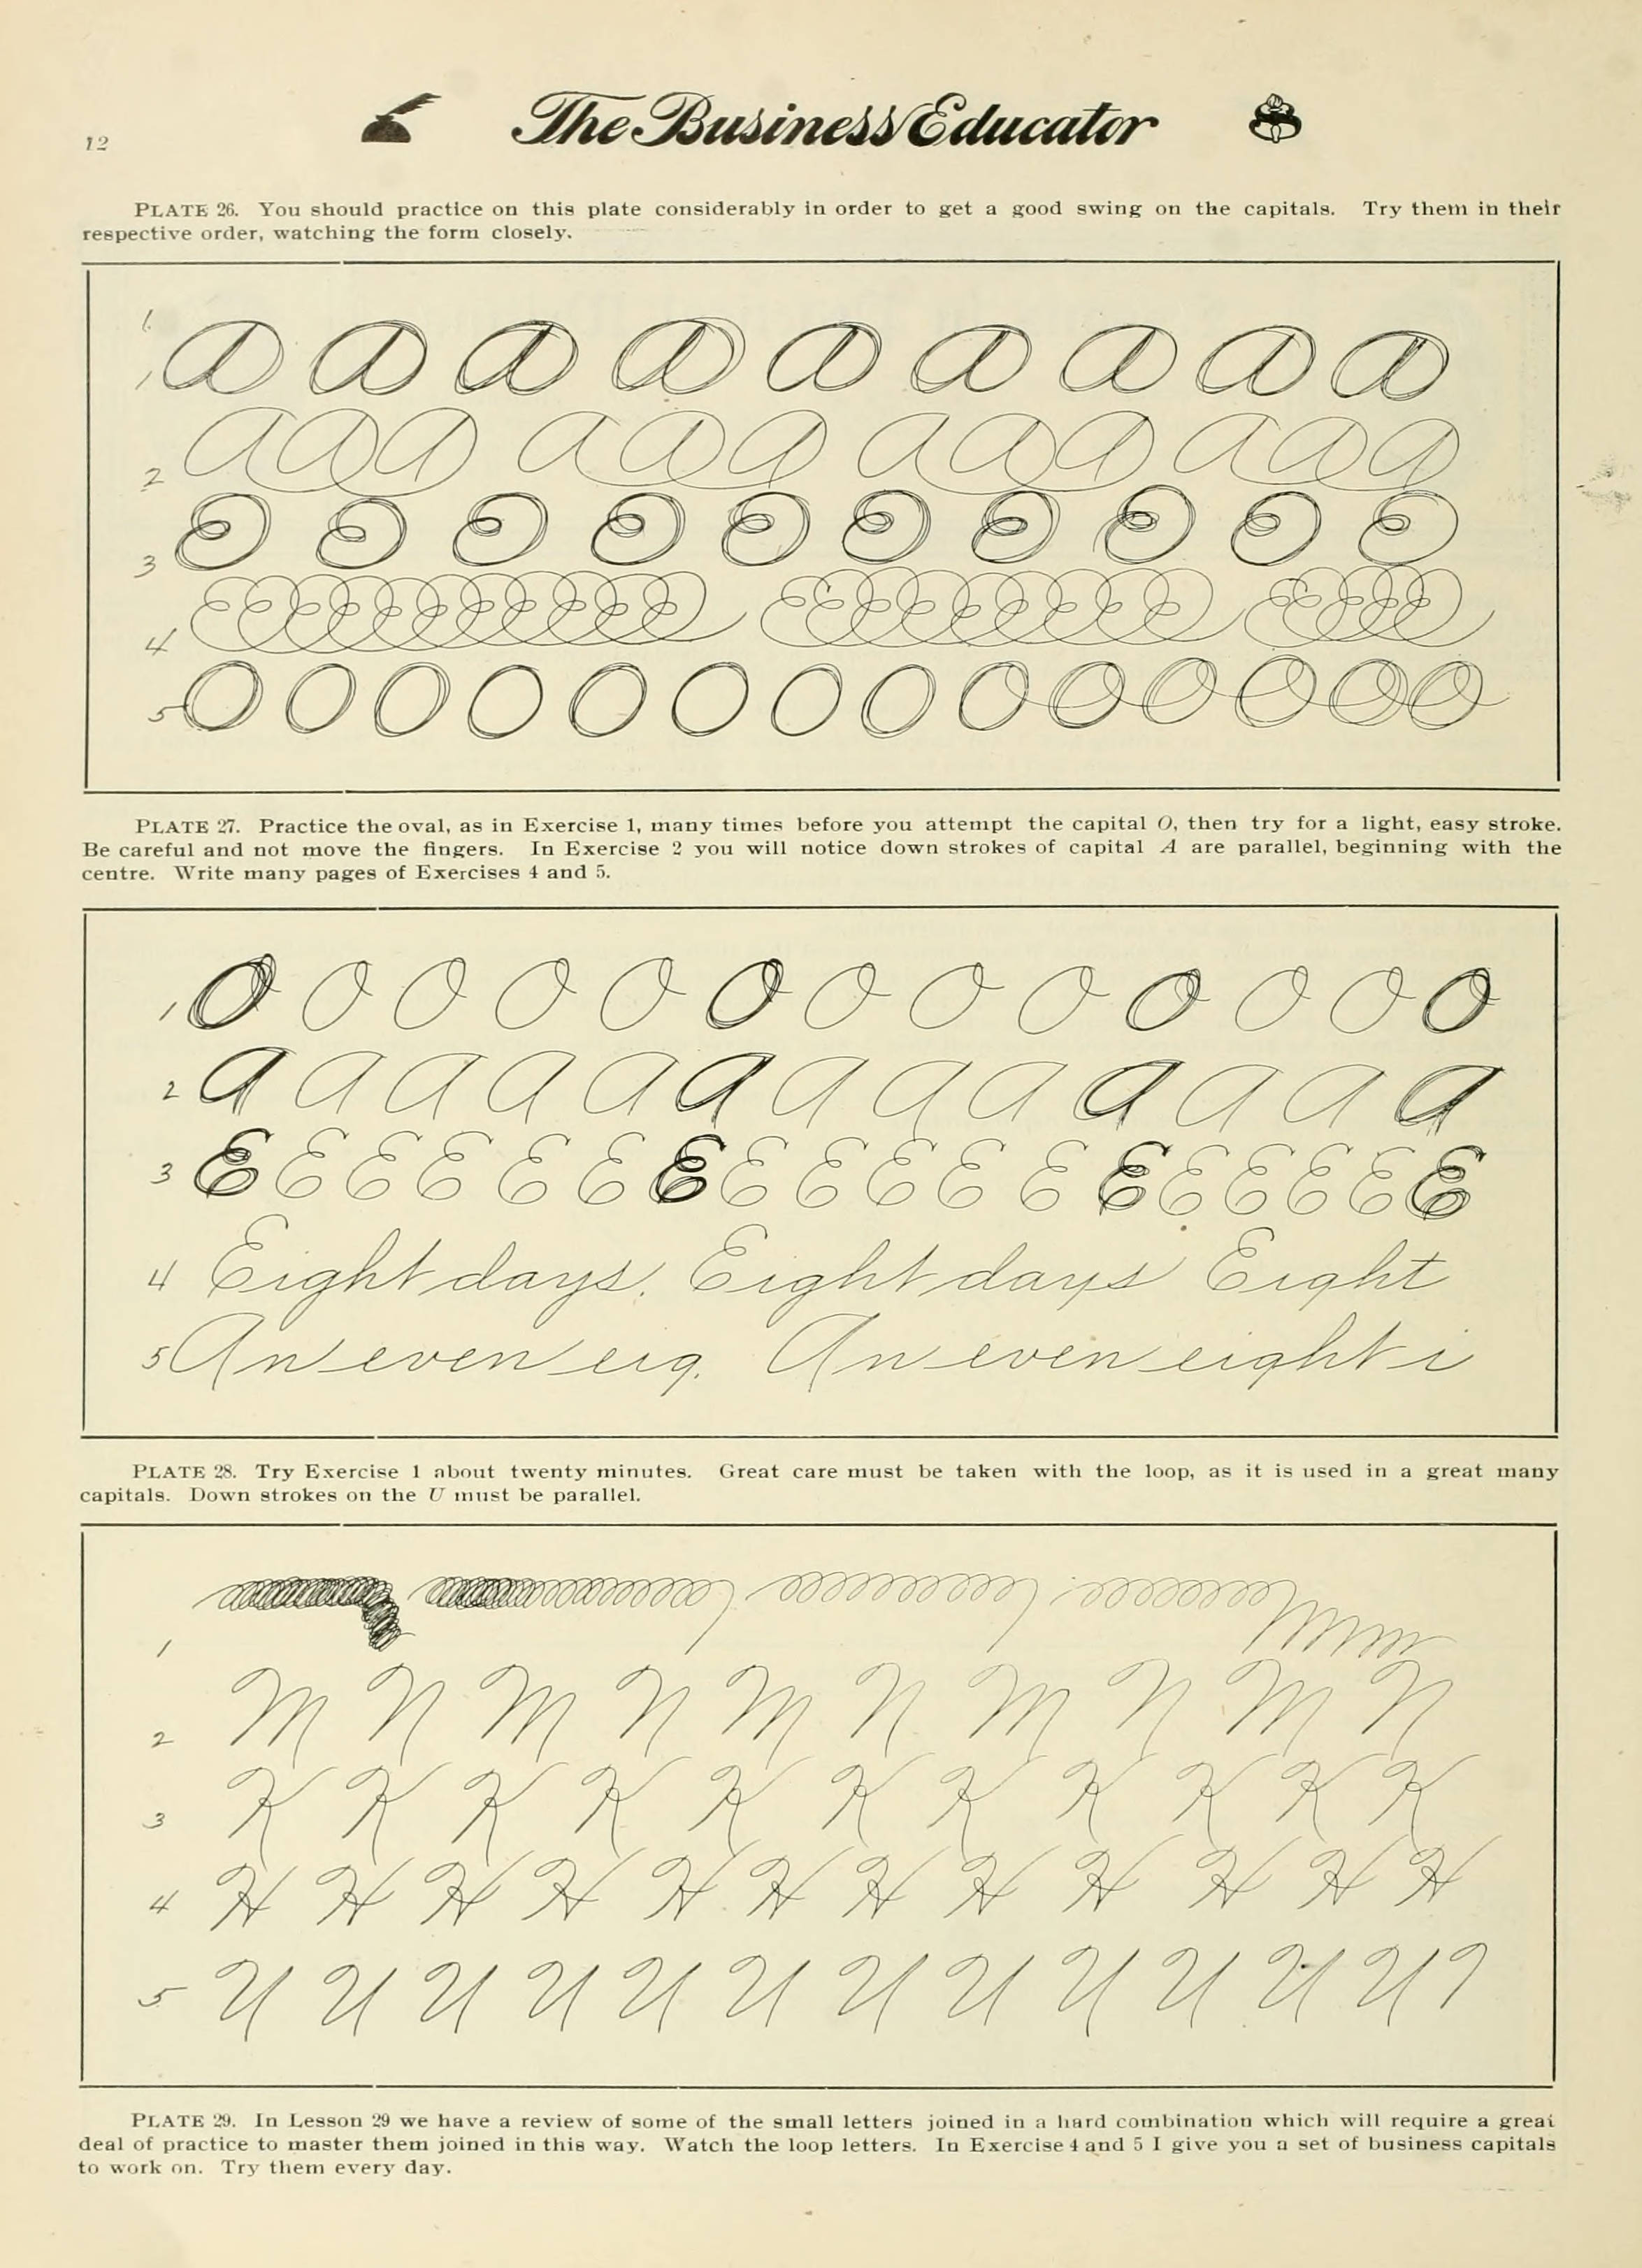 12
The Business Educator
PLATE 26. You should practice on this plate considerably in order to get a good swing on the capitals. Try them in their
respective order, watching the form closely.
1 A A A A A A A A A
2 A A A A A A A A A A A A
3
4
5 O O O O O O O O O O O O O O
PLATE 27. Practice the oval, as in Exercise 1, many times before you attempt the capital O, then try for a light, easy stroke.
Be careful and not move the fingers. In Exercise 2 you will notice down strokes of capital A are parallel, beginning with the
centre. Write many pages of Exercises 4 and 5.
1 O O O O O O O O O O O O O
2 A A A A A A A A A A A A A
3 E E E E E E E E E E E E E E E E E E
4 Eight days. Eight days Eight
5 An even eig. An even eight i
PLATE 28. Try Exercise 1 about twenty minutes. Great care must be taken with the loop, as it is used in a great many
capitals. Down strokes on the U must be parallel.
1
2 M N M N M N M N M N
3 K K K K K K K K K K K
4 H H H H H H H H H H H H
5 U U U U U U U U U U U U
PLATE 29. In Lesson 29 we have a review of some of the small letters joined in a hard combination which will require a great
deal of practice to master them joined in this way. Watch the loop letters. In Exercise 4 and 5 I give you a set of business capitals
to work on. Try them every day.